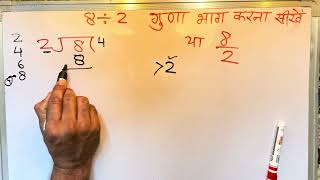 8÷2 गुणा भाग करना सीखें
2
4
6
8
2√8(4
8
>2
या 8/2